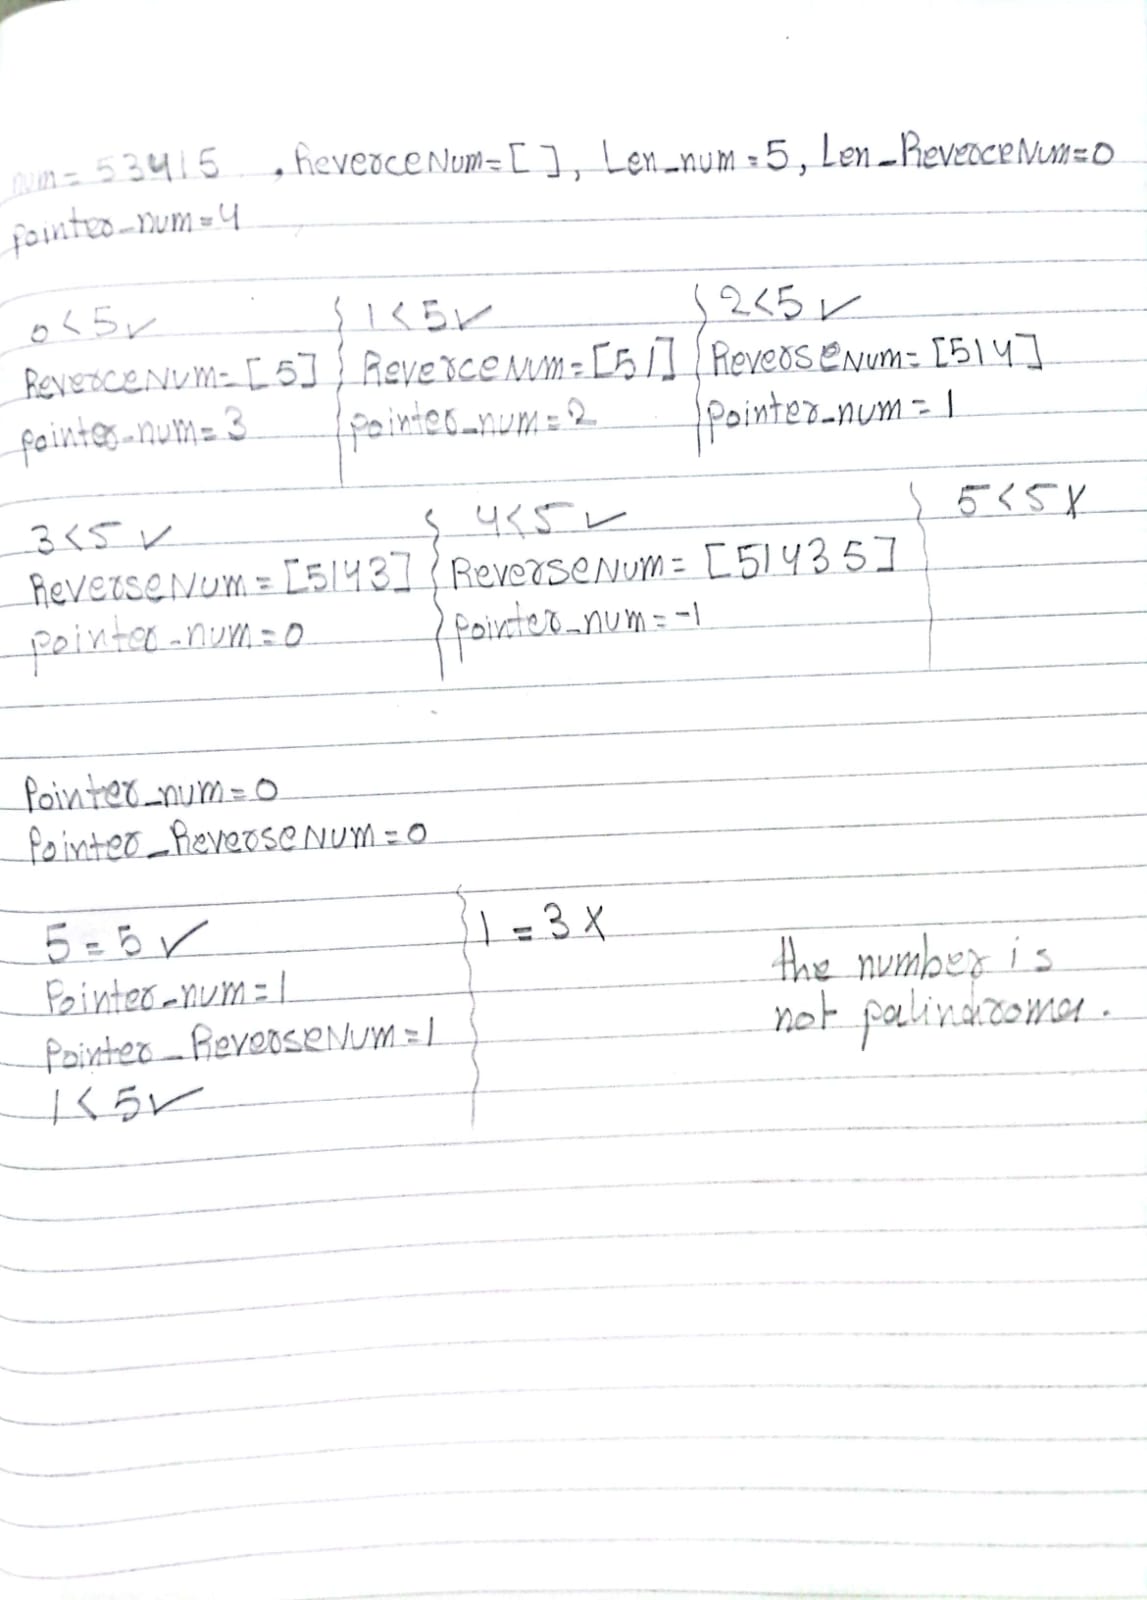 num = 53415 , ReverceNum=[ ], Len_num = 5, Len_ReverceNum=0
pointer_num=4
0<5✓
ReverceNum=[5]
pointer_num=3
1<5✓
ReverceNum=[51]
pointer_num=2
2<5✓
ReverseNum=[514]
pointer_num=1
3<5✓
ReverseNum=[5143]
pointer_num=0
4<5✓
ReverseNum=[51435]
pointer_num=-1
5<5X
Pointer_num=0
Pointer_ReverseNum=0
5=5✓
Pointer_num=1
Pointer_ReverseNum=1
1<5✓
1=3X
the number is
not palindroma.